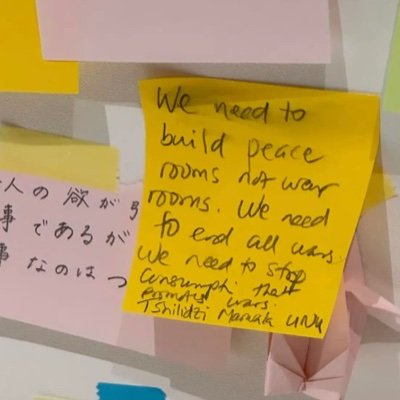 We need to
build peace
rooms not war
rooms. We need
to end all wars.
We need to stop
consumption that
promotes wars.
Tshilidzi Marwala UNU
人の欲が引
事であるが
事なのはつ